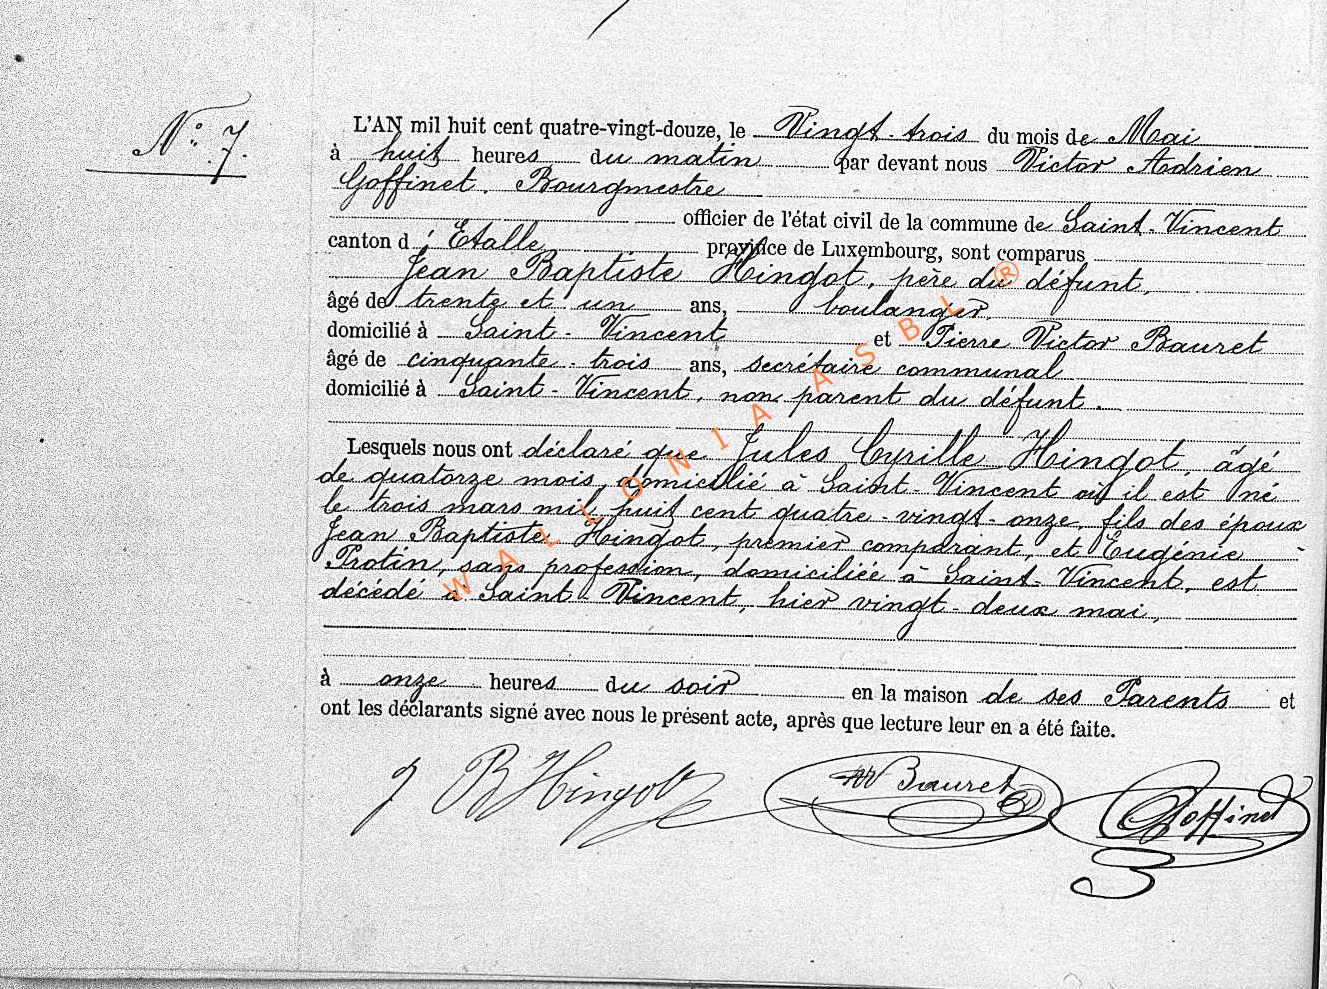 N° 7.
L'AN mil huit cent quatre-vingt-douze, le Vingt-trois du mois de Mai
à huit heures du matin par devant nous Victor Adrien
Goffinet. Bourgmestre
officier de l'état civil de la commune de Saint-Vincent
canton d'Etalle province de Luxembourg, sont comparus
Jean Baptiste Hingot, père du défunt,
âgé de trente et un ans, boulanger
domicilié à Saint-Vincent et Pierre Victor Bauret
âgé de cinquante-trois ans, secrétaire communal
domicilié à Saint-Vincent, non parent du défunt.
Lesquels nous ont déclaré que Jules Cyrille Hingot, âgé
de quatorze mois, domicilié à Saint-Vincent où il est né
le trois mars mil huit cent quatre-vingt-onze, fils des époux
Jean Baptiste Hingot, premier comparant, et Eugénie
Protin, sans profession, domiciliée à Saint-Vincent, est
décédé à Saint Vincent, hier vingt-deux mai,
à onze heures du soir en la maison de ses Parents et
ont les déclarants signé avec nous le présent acte, après que lecture leur en a été faite.
J B Hingot Bauret Goffinet
WALLONIA ASBL ®